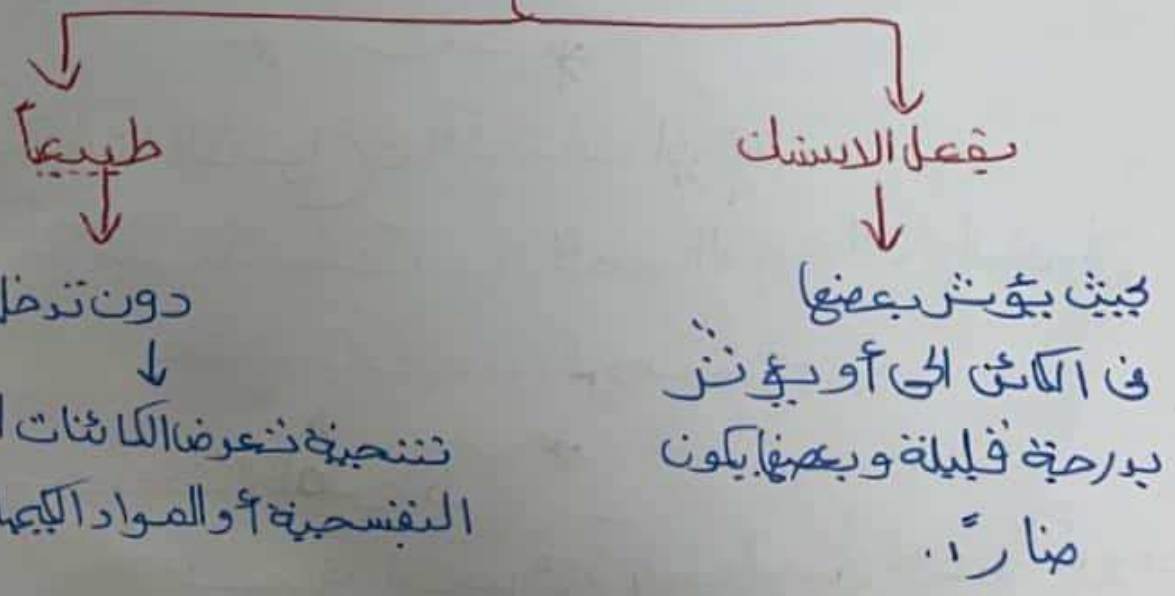 بفعل الانسان
طبيعياً
بحيث يؤثر بعضها
في الكائن الحي أو يؤثر
بدرجة قليلة وبعضها يكون
ضاراً.
دون تدخل
نتيجة تعرض الكائنات ا
البنفسجية أو المواد الكيميا